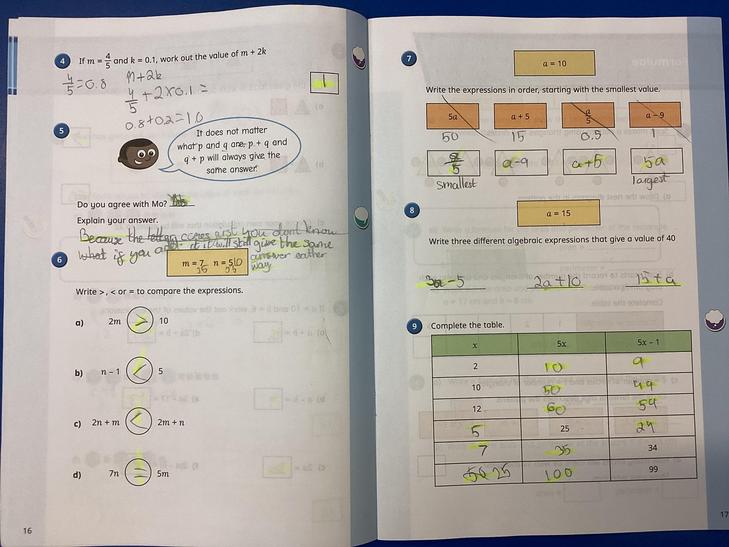 4 If m = 4/5 and k = 0.1, work out the value of m + 2k
4/5 = 0.8
m+2k
4/5 + 2×0.1 =
0.8+0.2=1.0
1
5
It does not matter
what p and q are, p + q and
q + p will always give the
same answer.
Do you agree with Mo?
Explain your answer.
Because the letters
you dont know
what if you
it will still give the same
answer eather
way
6 m = 7 n = 5
Write >, < or = to compare the expressions.
a) 2m > 10
b) n − 1 < 5
c) 2n + m < 2m + n
d) 7n = 5m
16
7
a = 10
Write the expressions in order, starting with the smallest value.
5a a + 5 a/5 a − 9
50 15 0.5 1
a/5 a-9 a+5 5a
smallest largest
8
a = 15
Write three different algebraic expressions that give a value of 40
3a-5 2a+10 15+a
9 Complete the table.
x 5x 5x − 1
2 10 9
10 50 49
12 60 59
5 25 24
7 35 34
25 100 99
17